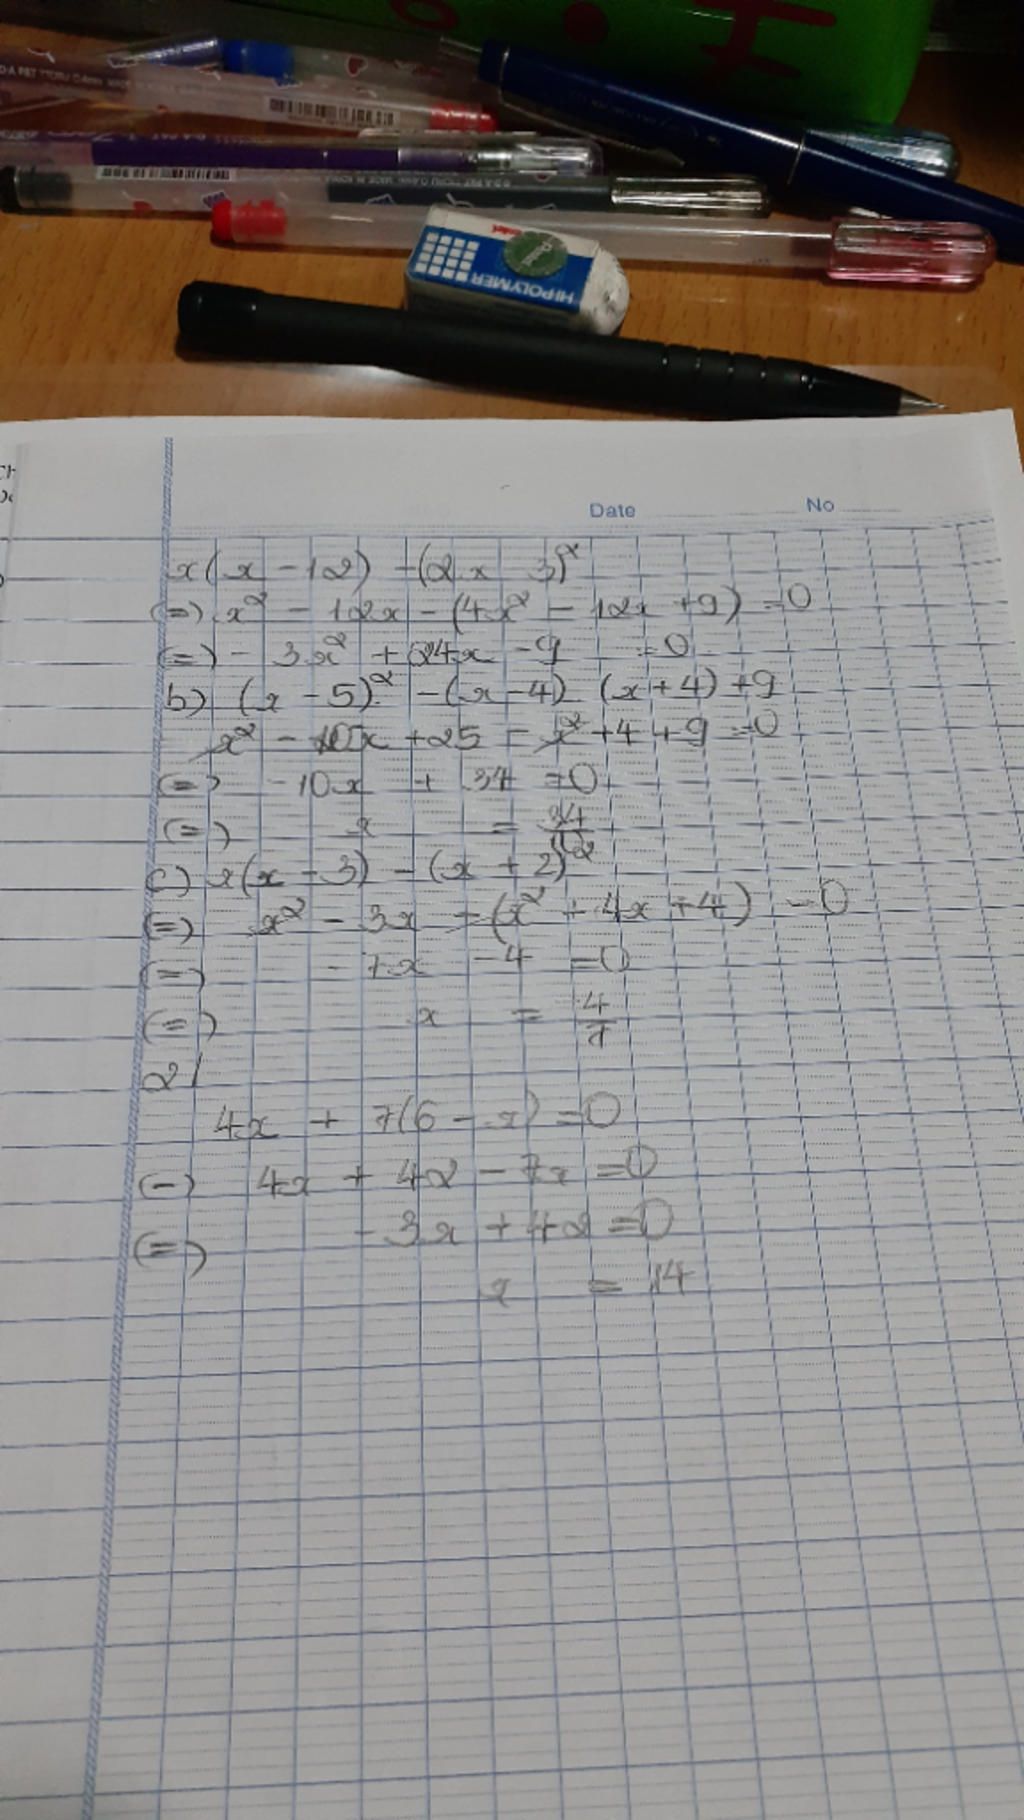 HI-POLYMER
Date No
x(x - 12) - (2x 3)²
(=) x² - 12x - (4x² - 12x + 9) = 0
(=) - 3x² + 24x - 9 = 0
b) (x - 5)² - (x - 4) (x + 4) + 9
x² - 10x + 25 - x² + 4 + 9 = 0
(=) -10x + 34 = 0
(=) x = 34/10
c) x(x - 3) - (x + 2)²
(=) x² - 3x - (x² + 4x + 4) = 0
(=) - 7x - 4 = 0
(=) x = 4/7
2/
4x + 7(6 - x) = 0
(=) 4x + 42 - 7x = 0
(=) - 3x + 42 = 0
x = 14